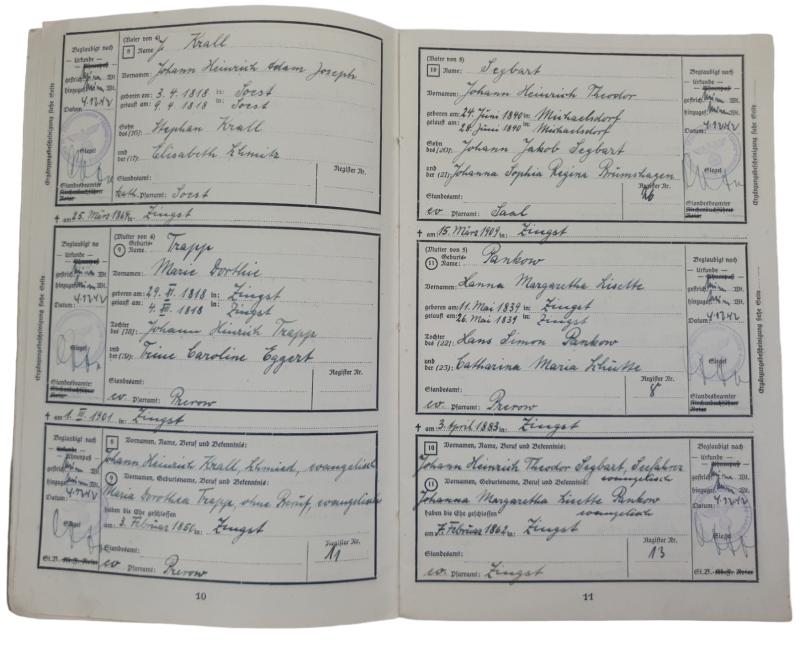 (Vater von 4)
8 Name: Krall
Vornamen: Johann Heinrich Adam Joseph
geboren am: 3. 4. 1818 in: Soest
getauft am: 9. 4. 1818 in: Soest
Sohn des (16): Stephan Krall
und der (17): Elisabeth Schmitz
Register Nr.
kath. Pfarramt: Soest
Beglaubigt nach
Urkunde
Ahnenpaß
Datum: 4.12.42
Siegel
Standesbeamter
Kirchenbuchführer
Notar
Ergänzungsbescheinigung siehe Seite
† am: 25. März 1864 in: Zingst
(Mutter von 4)
9 Geburts-Name: Trapp
Vornamen: Marie Dorthie
geboren am: 29. XI. 1818 in: Zingst
getauft am: 4. XII. 1818 in: Zingst
Tochter des (18): Johann Heinrich Trapp
und der (19): Trine Caroline Eggert
Standesamt:
Register Nr.
ev. Pfarramt: Prerow
Beglaubigt nach
Urkunde
Ahnenpaß
Datum: 4.12.42
Siegel
Standesbeamter
Kirchenbuchführer
Notar
Ergänzungsbescheinigung siehe Seite
† am 1. 1901 in: Zingst
8 Vornamen, Name, Beruf und Bekenntnis:
Johann Heinrich Krall, Schmied, evangelisch
9 Vornamen, Geburtsname, Beruf und Bekenntnis:
Maria Dorothea Trapp, ohne Beruf, evangelisch
haben die Ehe geschlossen
am: 3. Februar in: Zingst
Standesamt:
Register Nr. 11
ev. Pfarramt: Prerow
Beglaubigt nach
Urkunde
Ahnenpaß
Datum: 4.12.42
Siegel
St.B. Kbchf. Notar
10
(Vater von 5)
10 Name: Segbart
Vornamen: Johann Heinrich Theodor
geboren am: 24. Juni 1840 in: Michaelsdorf
getauft am: 28. Juni 1840 in: Michaelsdorf
Sohn des (20): Johann Jakob Segbart
und der (21): Johanna Sophia Regina Brumshagen
Standesamt:
Register Nr. 16
ev. Pfarramt: Saal
Beglaubigt nach
Urkunde
Ahnenpaß
Datum: 4.12.42
Siegel
Standesbeamter
Kirchenbuchführer
Notar
† am: 15. März 1909 in: Zingst
(Mutter von 5)
11 Geburts-Name: Pankow
Vornamen: Hanna Margaretha Lisette
geboren am: 11. Mai 1839 in: Zingst
getauft am: 26. Mai 1839 in: Zingst
Tochter des (22): Hans Simon Pankow
und der (23): Catharina Maria Schütte
Standesamt:
Register Nr. 8
ev. Pfarramt: Prerow
Beglaubigt nach
Urkunde
Ahnenpaß
Datum: 4.12.42
Siegel
Standesbeamter
Kirchenbuchführer
Notar
Ergänzungsbescheinigung siehe Seite
† am: 3. April 1883 in: Zingst
10 Vornamen, Name, Beruf und Bekenntnis:
Johann Heinrich Theodor Segbart, Seefahrer
evangelisch
11 Vornamen, Geburtsname, Beruf und Bekenntnis:
Johanna Margaretha Lisette Pankow
haben die Ehe geschlossen evangelisch
am: 7. Februar 1862 in: Zingst
Standesamt:
Register Nr. 13
ev. Pfarramt: Zingst
Beglaubigt nach
Urkunde
Ahnenpaß
Datum: 4.12.42
Siegel
St.B. Kbchf. Notar
11